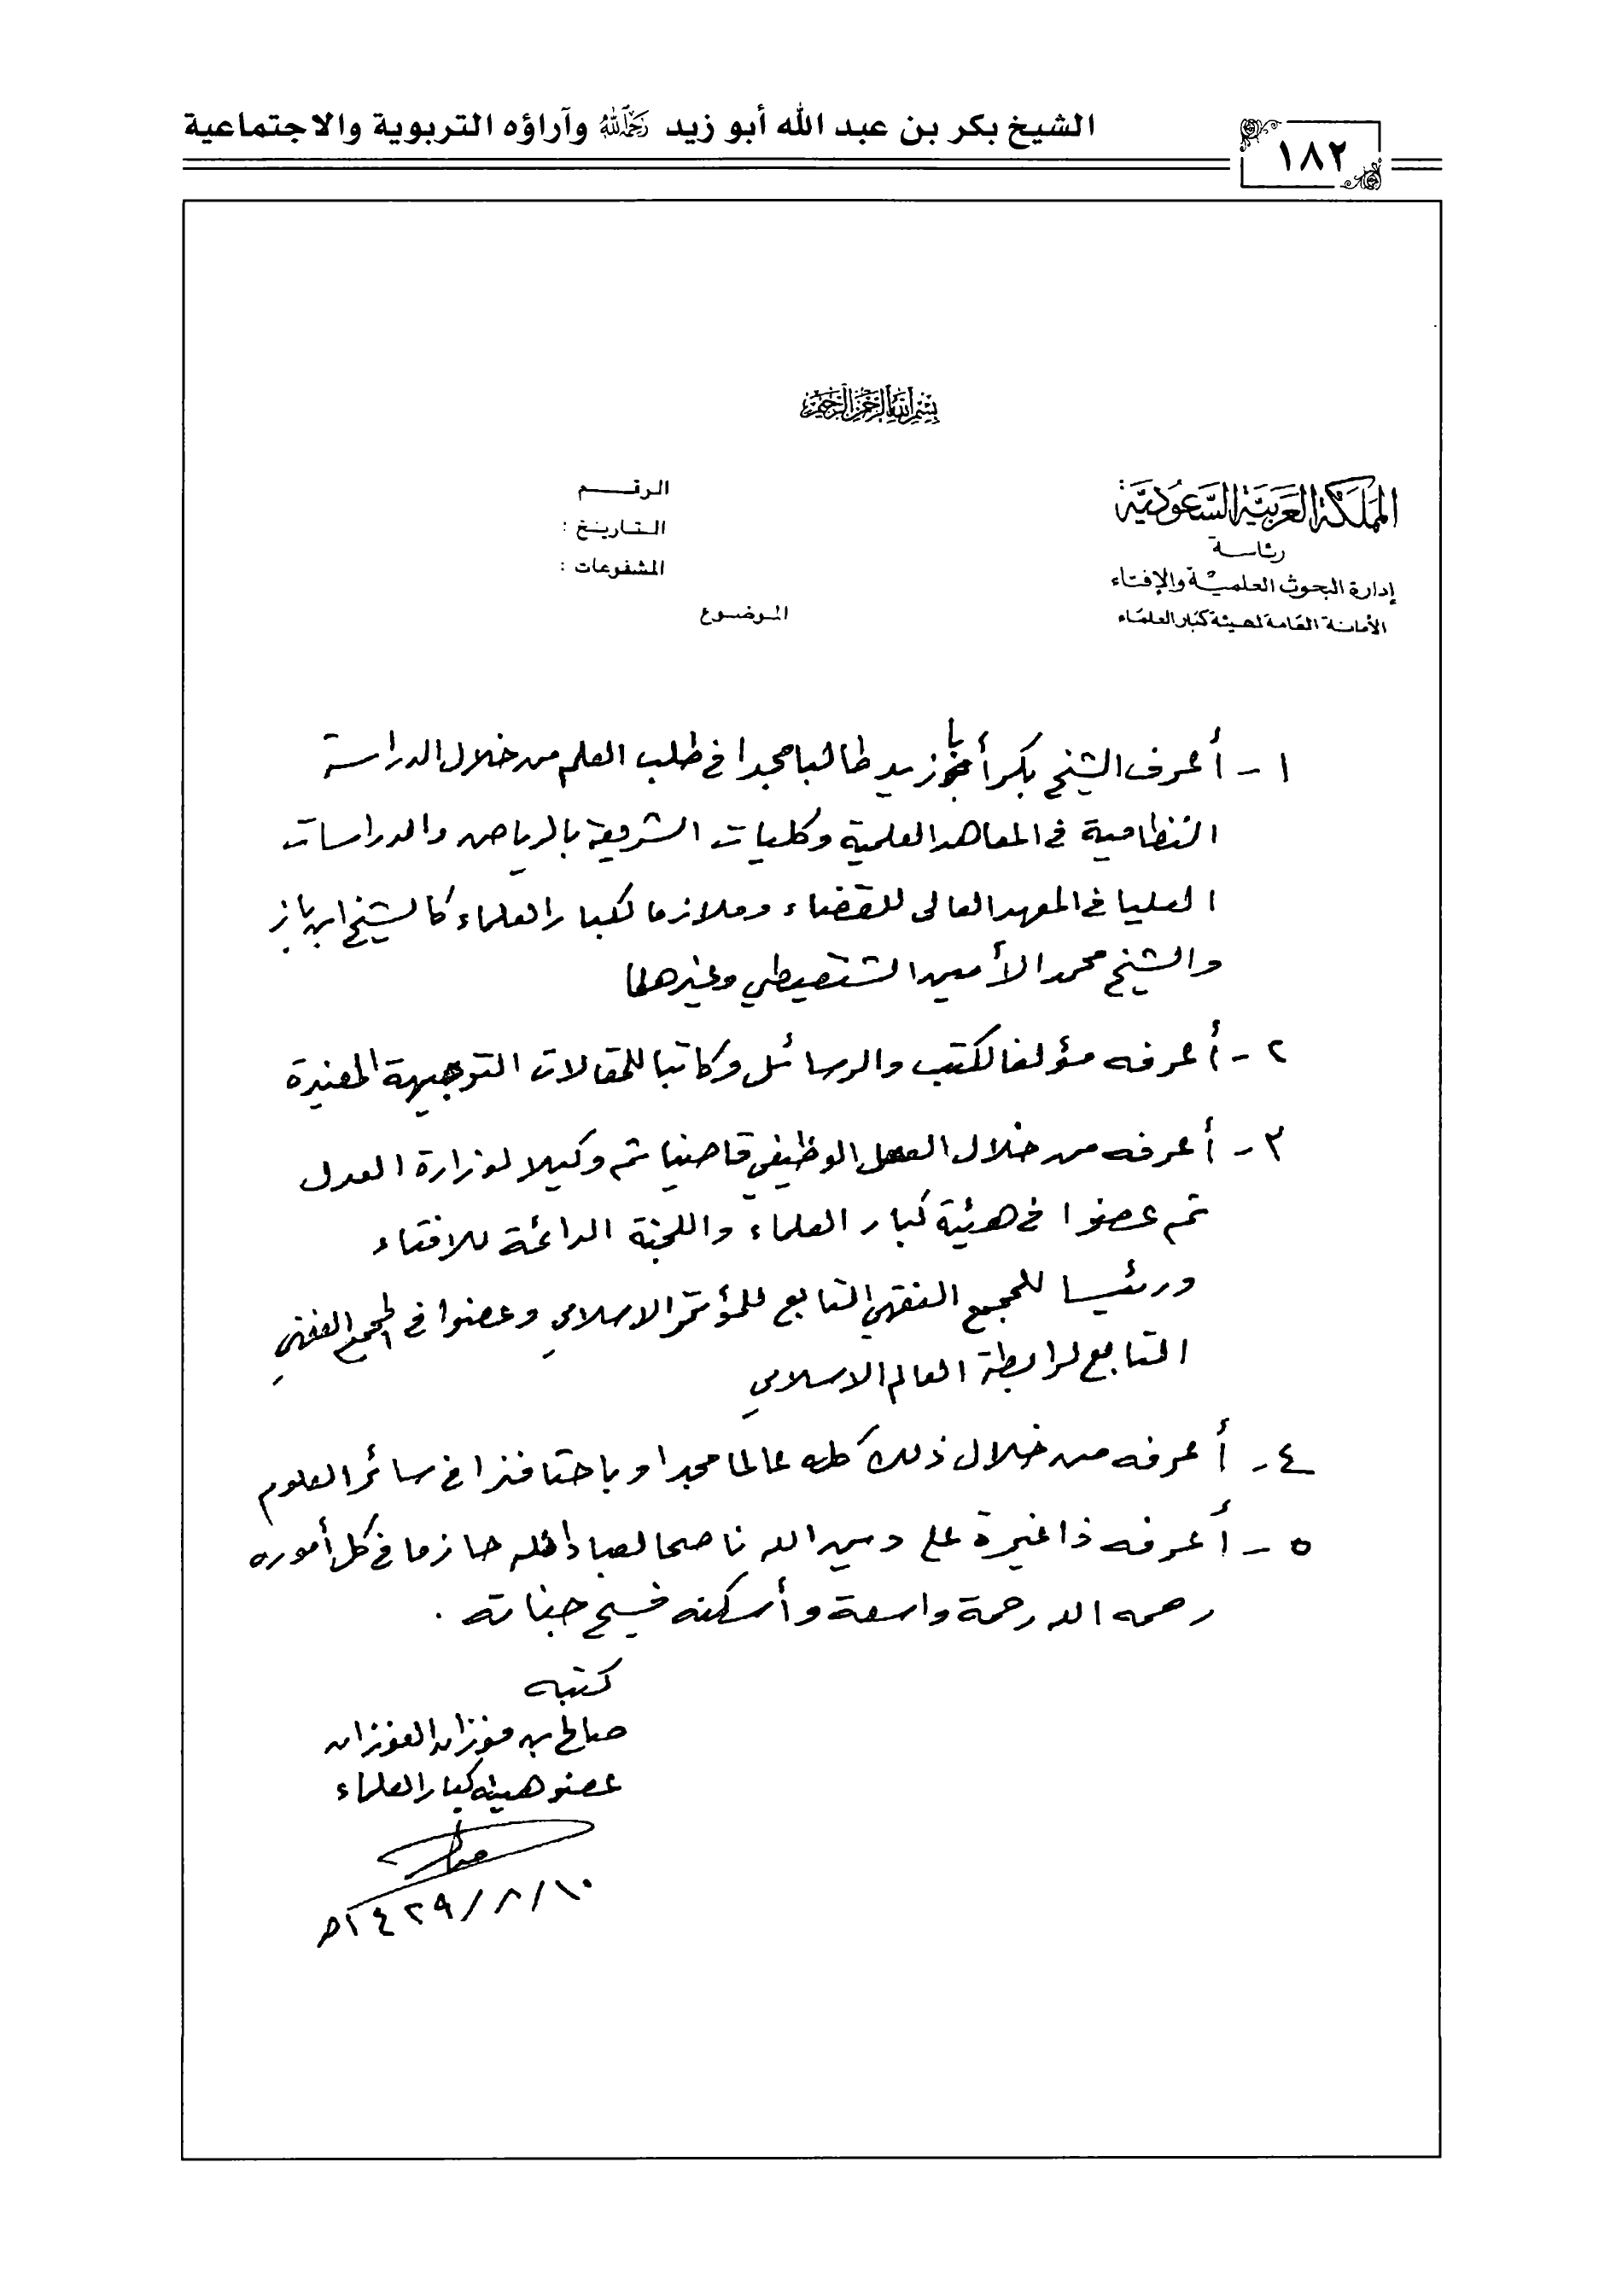 الشيخ بكر بن عبد الله أبو زيد رحمه الله وآراؤه التربوية والاجتماعية
١٨٢
بسم الله الرحمن الرحيم
المملكة العربية السعودية
رئاسة
إدارة البحوث العلمية والإفتاء
الأمانة العامة لهيئة كبار العلماء
الرقم
التاريخ :
المشفوعات :
الموضوع
١ - أعرف الشيخ بكر أبا زيد طالبا مجدا في طلب العلم من خلال الدراسة
النظامية في المعاهد العلمية وكليات الشريعة بالرياض والدراسات
العليا في المعهد العالي للقضاء وملازما لكبار العلماء كالشيخ ابن باز
والشيخ محمد الأمين الشنقيطي وغيرهما
٢ - أعرفه مؤلفا لكتب والرسائل وكاتبا للمقالات التوجيهة المفيدة
٣ - أعرفه من خلال العمل الوظيفي قاضيا ثم وكيلا لوزارة العدل
ثم عضوا في هيئة كبار العلماء واللجنة الدائمة للافتاء
ورئيسا للمجمع الفقهي التابع للمؤتمر الاسلامي وعضوا في المجمع الفقهي
التابع لرابطة العالم الاسلامي
٤ - أعرفه من خلال ذلك كله عالما مجدا وباحثا فذا في سائر العلوم
٥ - أعرفه ذا غيرة على دين الله ناصحا لعباد الله حازما في كل أموره
رحمه الله رحمة واسعة وأسكنه فسيح جناته .
كتبه
صالح بن فوزان الفوزان
عضو هيئة كبار العلماء
١٤٢٩/٨/١٠هـ